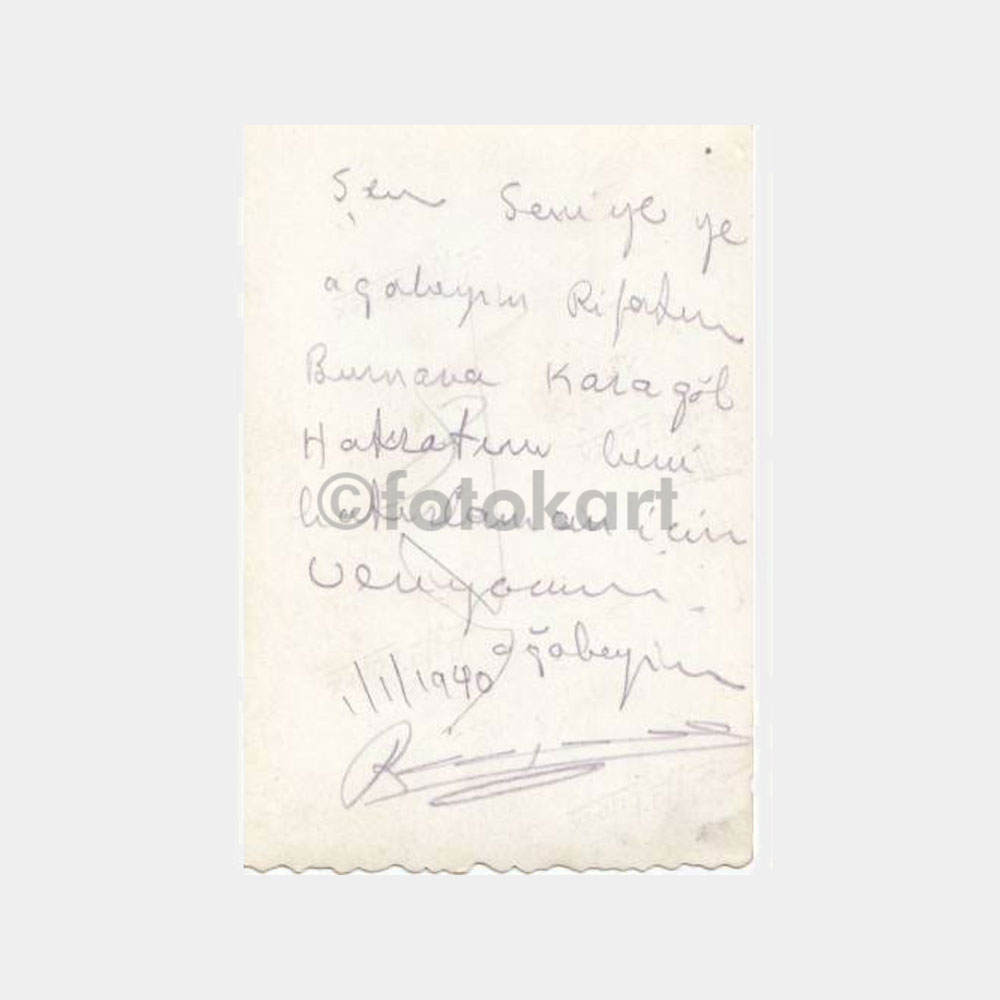 Şen Seniye ye
agabeyin Rifatın
Burnava Karagöl
Hatıratını beni
hatırlaman için
veriyorum.
ağabeyin
1/1/1940
©fotokart